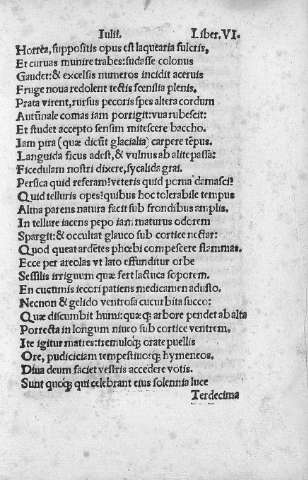 Iulii. Liber.VI.
Horrea, suppositis opus est laquearia fulcris,
Et curuas munire trabes: sudasse colonus
Gaudet: & excelsis numeros incidit aceruis
Fruge noua redolent tectis fœnilia plenis,
Prata virent, rursus pecoris spes altera cordum
Autũnale comas iam porrigit: vua rubescit:
Et studet accepto sensim mitescere baccho.
Iam pira (quæ dicũt glacialia) carpere tẽpus.
Languida ficus adest, & vulnus ab alite passa:
Ficedulam nostri dixere, sycalida grai.
Persica quid referam? veteris quid poma damasci?
Quid telluris opes? quibus hoc tolerabile tempus
Alma parens natura facit sub frondibus amplis,
In tellure iacens pepo iam maturus odorem
Spargit: & occultat glauco sub cortice nectar:
Quod queat ardẽtes phœbi compescere flammas.
Ecce per areolas vt lato effunditur orbe
Sessilis irriguum quæ fert lactuca soporem.
En cucumis iecori patiens medicamen adusto.
Necnon & gelido ventrosa cucurbita succo:
Quæ discumbit humi: quæq; arbore pendet ab alta
Porrecta in longum niueo sub cortice ventrem,
Ite igitur matres: tremuloq; orate puellis
Ore, pudiciciam tempestiuosq; hymeneos,
Diua deum faciet vestris accedere votis.
Sunt quoq; qui celebrant eius solennia luce
Terdecima